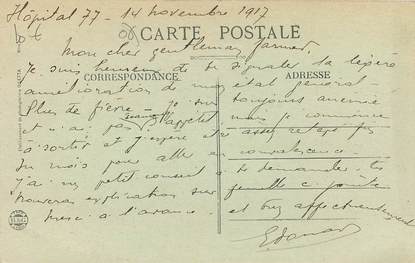 Hôpital 77 - 14 novembre 1917
CARTE POSTALE
Mon cher gentleman farmer,
CORRESPONDANCE
ADRESSE
Je suis heureux de te signaler la légère
amélioration de mon état général -
Plus de fièvre - je suis toujours anémié
et n'ai pas d'appétit mais je commence
à sortir et j'espère être assez retapé fin
du mois pour aller en convalescence.
J'ai un petit conseil à te demander - tu
trouveras explication sur feuille ci jointe
merci à l'avance - et bien affectueusement
Edouard